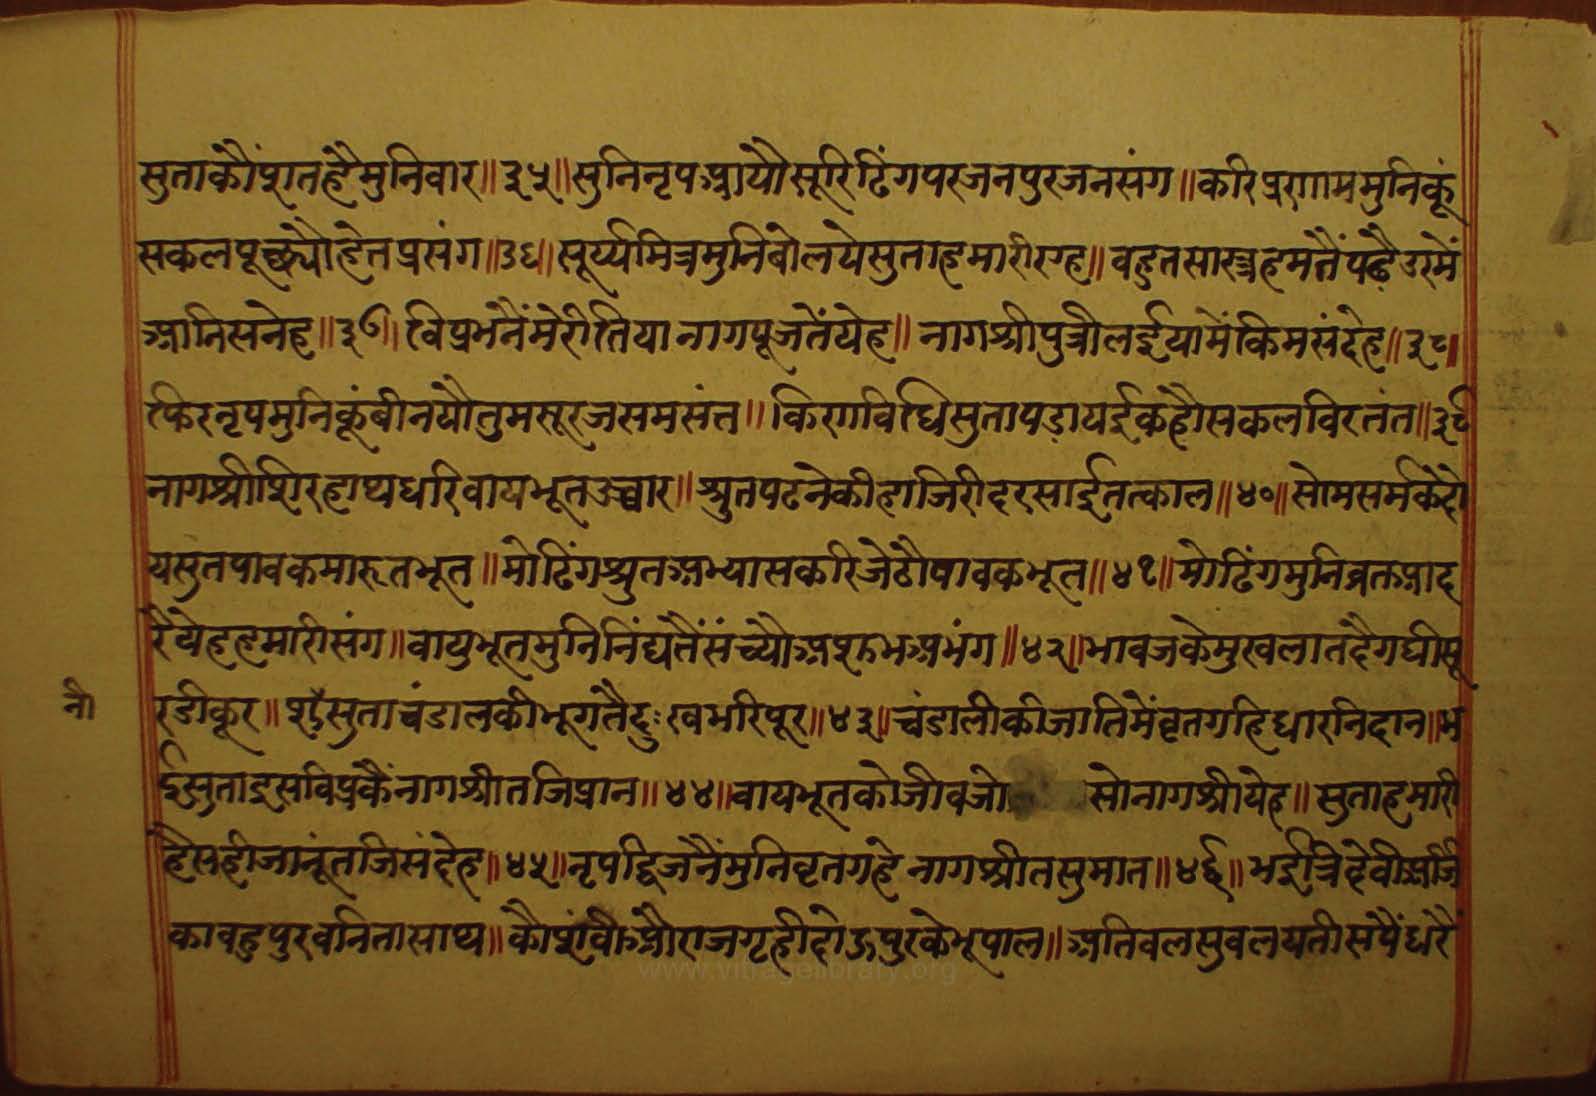 सुताकौंषातहैमुनिवार॥३५॥सुनिनृपआयौसूरिढिंगपरजनपुरजनसंग॥करिप्ररणाममुनिकूं
सकलपूछ्यौहेतप्रसंग॥३६॥सूर्य्यमित्रमुनिबोलयेसुताहमारीएह॥बहुतसास्त्रहमतैंपढैउरमें
आनिसनेह॥३७॥विप्रभनैंमेरीतियानागपूजतेंयेह॥नागश्रीपुत्रीलईयामेंकिमसंदेह॥३८॥
फिरनृपमुनिकूंवीनयौतुमसूरजसमसंत॥किरणविधिसुतापडायईकहौसकलविरतंत॥३९
नागश्रीशिरहाथधरिवायभूतउच्चार॥श्रुतपठनेकीहाजिरीदरसाईततकाल॥४०॥सोमसर्मकेदो
यसुतपावकमारुतभूत॥मोढिंगश्रुतअभ्यासकरिजेठौपावकभूत॥४१॥मोढिंगमुनिव्रतआद
रैयेहहमारीसंग॥वायुभूतमुनिनिंद्यतैंसंच्यौअशुभअभंग॥४२॥भावजकेमुखलातदैगधीसू
रडीकूर॥सुताचंडालकीभूगतैदुःखभरिपूर॥४३॥चंडालीकीजातिमेंवृतगहिधारनिदान॥भ
ईसुताइसविप्रकैंनागश्रीतजिप्रान॥४४॥वायभूतकोजीवजो सोनागश्रीयेह॥सुताहमारी
हैसहीजानूंतजिसंदेह॥४५॥नृपद्विजनैंमुनिवृतगहेनागश्रीतसुमात॥४६॥भईत्रिदेवीअर्जि
काबहुपुरवनितासाथ॥कौशंवीऔराजगृहीदोऊपुरकेभूपाल॥अतिबलसुबलयतीसपैंधारै
नी
www.vitragelibrary.org